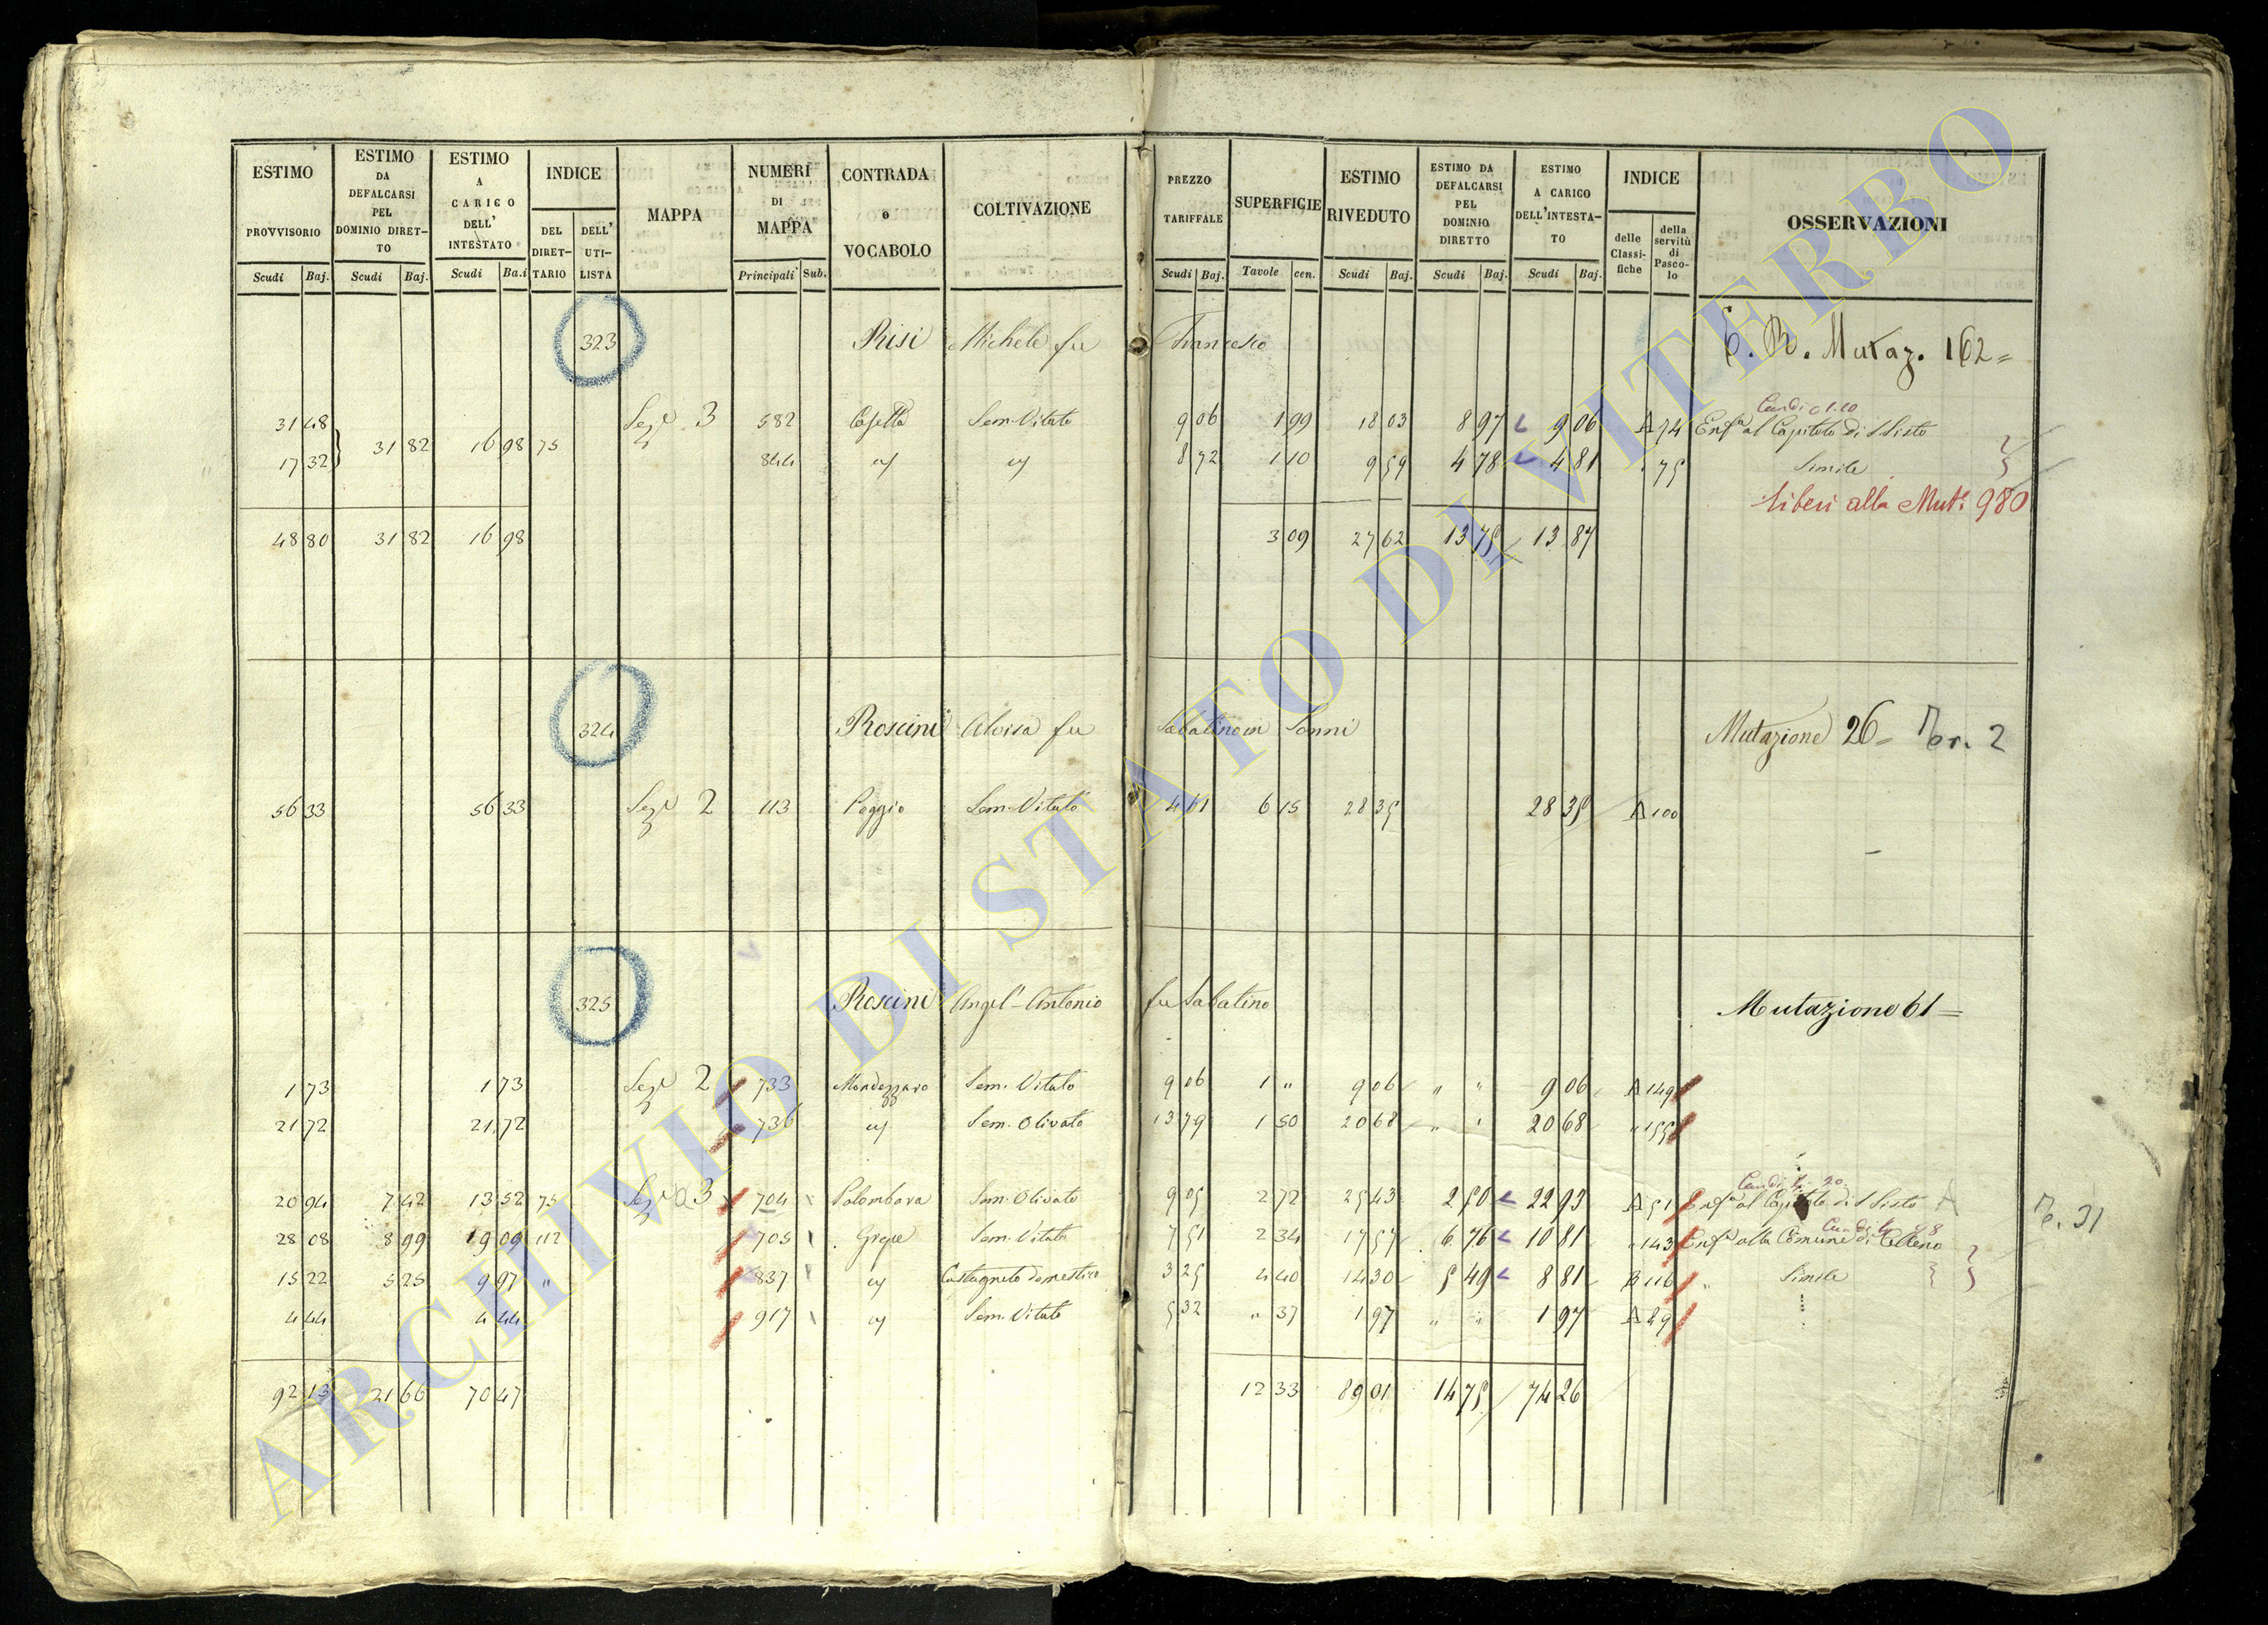 ESTIMO PROVVISORIO Scudi Baj.
ESTIMO DA DEFALCARSI PEL DOMINIO DIRET-TO Scudi Baj.
ESTIMO A CARICO DELL' INTESTATO Scudi Ba.i
INDICE DEL DIRET-TARIO DELL' UTI-LISTA
MAPPA
NUMERI DI MAPPA Principali Sub.
CONTRADA o VOCABOLO
COLTIVAZIONE
PREZZO TARIFFALE Scudi Baj.
SUPERFICIE Tavole cen.
ESTIMO RIVEDUTO Scudi Baj.
ESTIMO DA DEFALCARSI PEL DOMINIO DIRETTO Scudi Baj.
ESTIMO A CARICO DELL'INTESTA-TO Scudi Baj.
INDICE delle Classi-fiche della servitù di Pasco-lo
OSSERVAZIONI
323 Risi Michele fu Francesco Mutaz. 162=
31 48 31 82 16 98 75 Sez.e 3 582 Casetta Sem. Vitato 9 06 1 99 18 03 8 97 9 06 A 74 Enf.a al Capitolo di S Sisto
17 32 844 " " 8 72 1 10 9 59 4 78 4 81 " 75 Simile
Liberi alla Mut. 980
48 80 31 82 16 98 3 09 27 62 13 75 13 87
324 Roscini Aloisa fu Sabatino in Sanni Mutazione 26=
56 33 56 33 Sez.e 2 113 Poggio Sem. Vitato 4 61 6 15 28 35 28 35 A 100
325 Roscini Angel'-Antonio fu Sabatino Mutazione 61=
1 73 1 73 Sez.e 2 733 Mondezzaro Sem. Vitato 9 06 1 " 9 06 " " 9 06 A 149
21 72 21 72 736 " Sem. Olivato 13 79 1 50 20 68 " " 20 68 " 155
20 94 7 42 13 52 75 Sez.e 3 704 Palombara Sem. Olivato 9 05 2 72 25 43 2 50 22 93 A 51 Enf.a al Capitolo di S Sisto
28 08 8 99 19 09 112 705 Greppe Sem. Vitato 7 51 2 34 17 57 6 76 10 81 " 143 Enf.a alla Comune di Celleno
15 22 5 25 9 97 " 837 " Castagneto domestico 3 25 4 40 14 30 5 49 8 81 B 116 " Simile
4 44 4 44 917 " Sem. Vitato 5 32 " 37 1 97 " " 1 97 A 89
92 13 21 66 70 47 12 33 89 01 14 75 74 26
ARCHIVIO DI STATO DI VITERBO